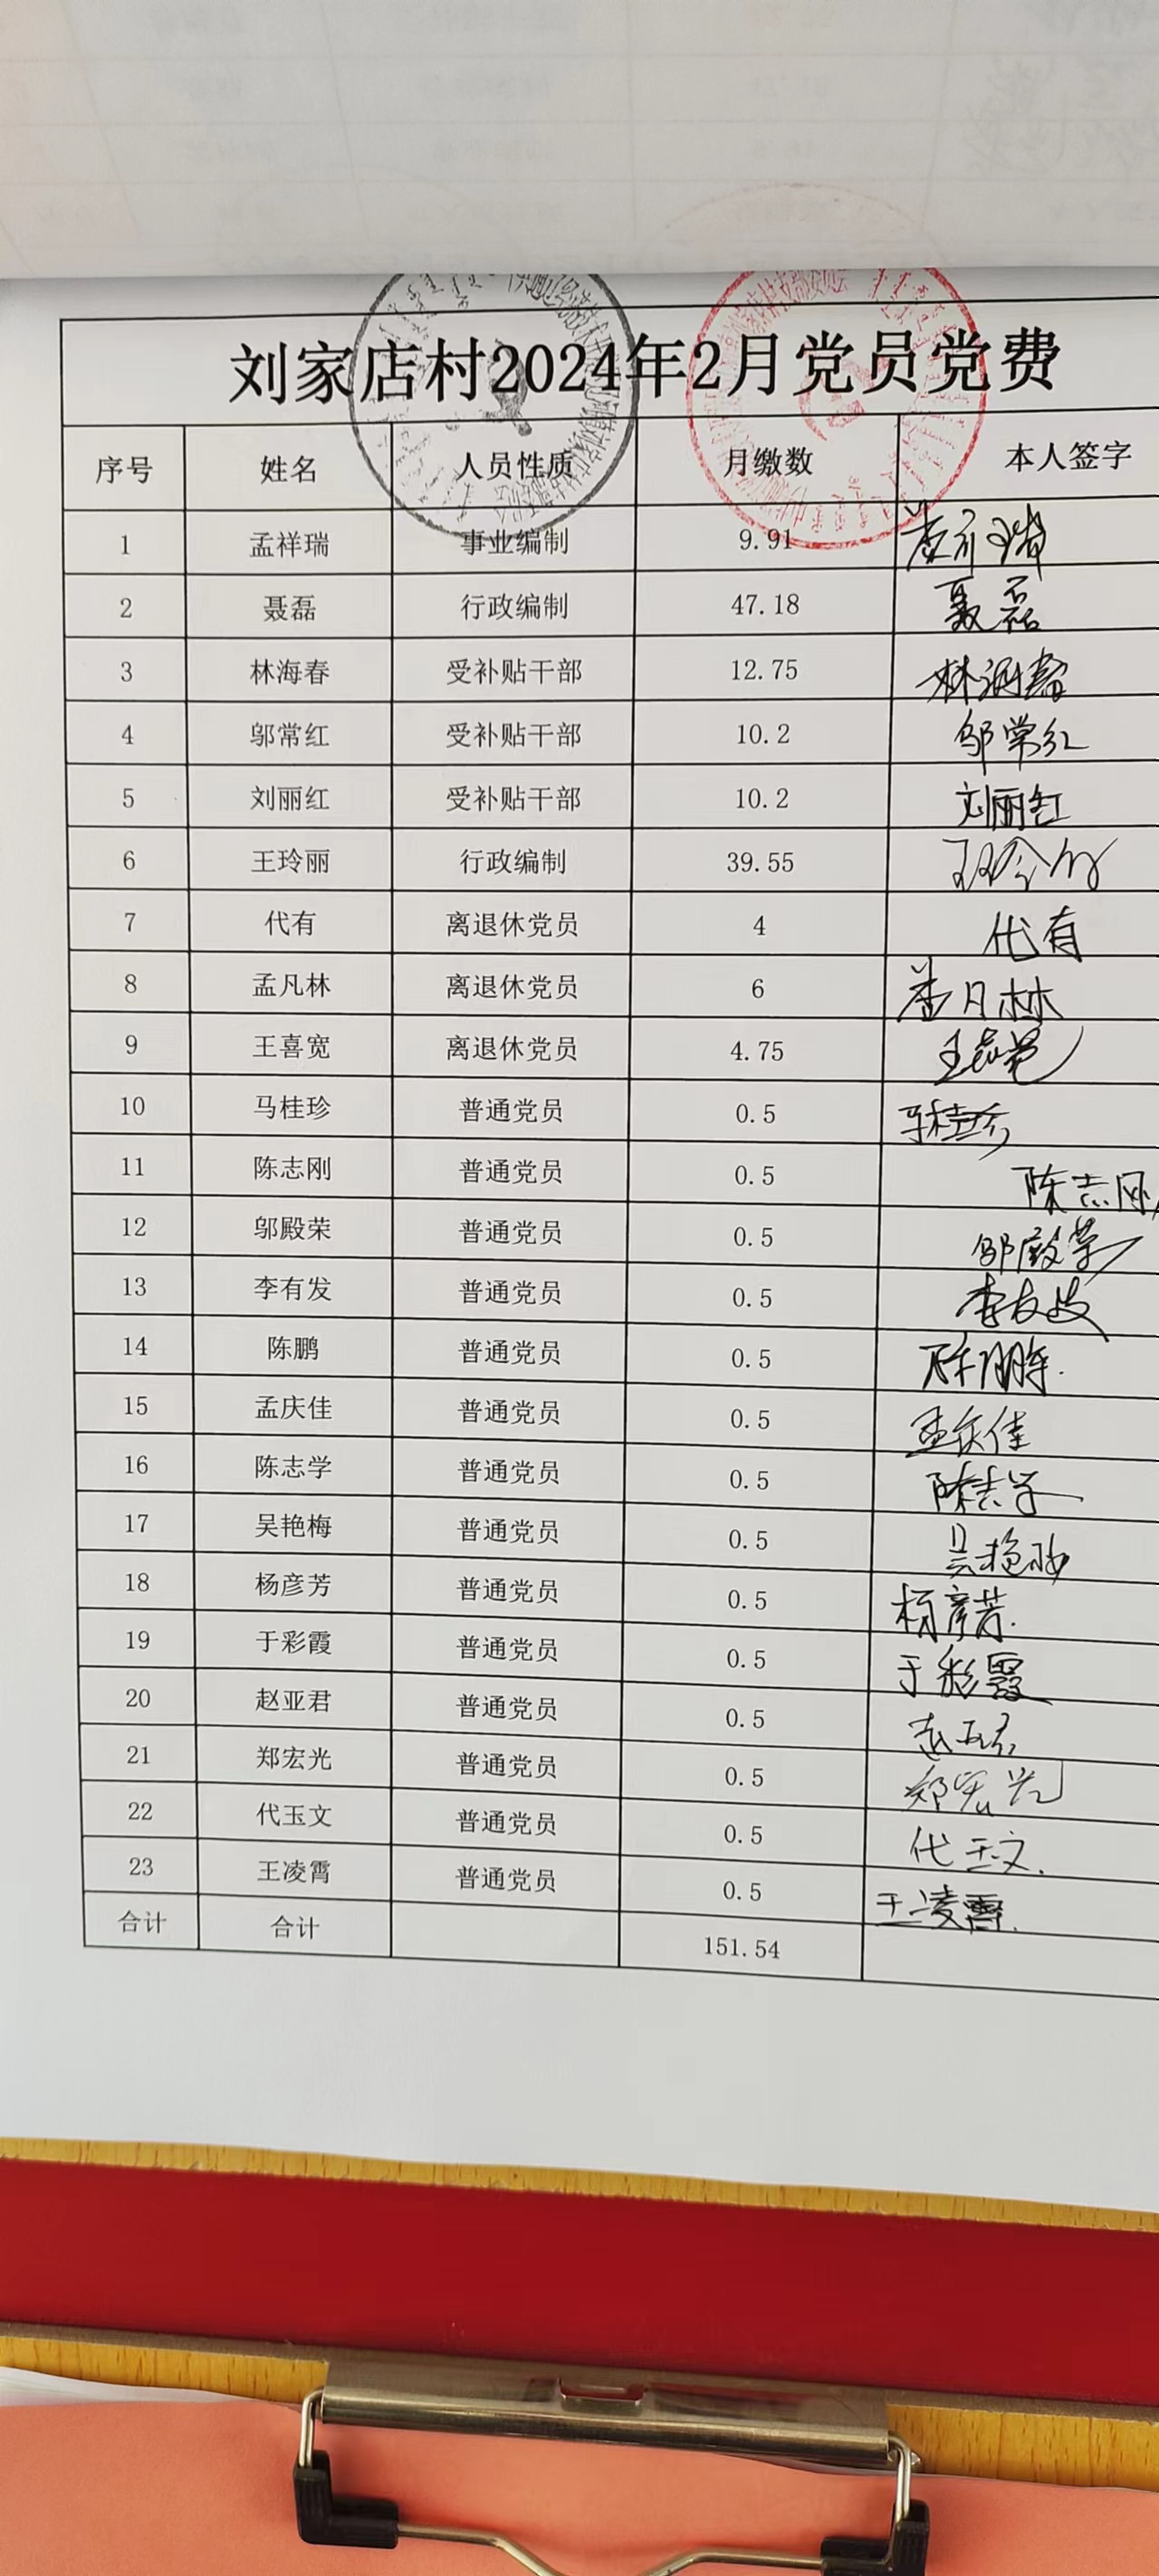 刘家店村2024年2月党员党费
序号 姓名 人员性质 月缴数 本人签字
1 孟祥瑞 事业编制 9.91 孟祥瑞
2 聂磊 行政编制 47.18 聂磊
3 林海春 受补贴干部 12.75 林海春
4 邬常红 受补贴干部 10.2 邬常红
5 刘丽红 受补贴干部 10.2 刘丽红
6 王玲丽 行政编制 39.55 王玲丽
7 代有 离退休党员 4 代有
8 孟凡林 离退休党员 6 孟凡林
9 王喜宽 离退休党员 4.75 王喜宽
10 马桂珍 普通党员 0.5 马桂珍
11 陈志刚 普通党员 0.5 陈志刚
12 邬殿荣 普通党员 0.5 邬殿荣
13 李有发 普通党员 0.5 李有发
14 陈鹏 普通党员 0.5 陈鹏
15 孟庆佳 普通党员 0.5 孟庆佳
16 陈志学 普通党员 0.5 陈志学
17 吴艳梅 普通党员 0.5 吴艳梅
18 杨彦芳 普通党员 0.5 杨彦芳
19 于彩霞 普通党员 0.5 于彩霞
20 赵亚君 普通党员 0.5 赵亚君
21 郑宏光 普通党员 0.5 郑宏光
22 代玉文 普通党员 0.5 代玉文
23 王凌霄 普通党员 0.5 王凌霄
合计 合计 151.54